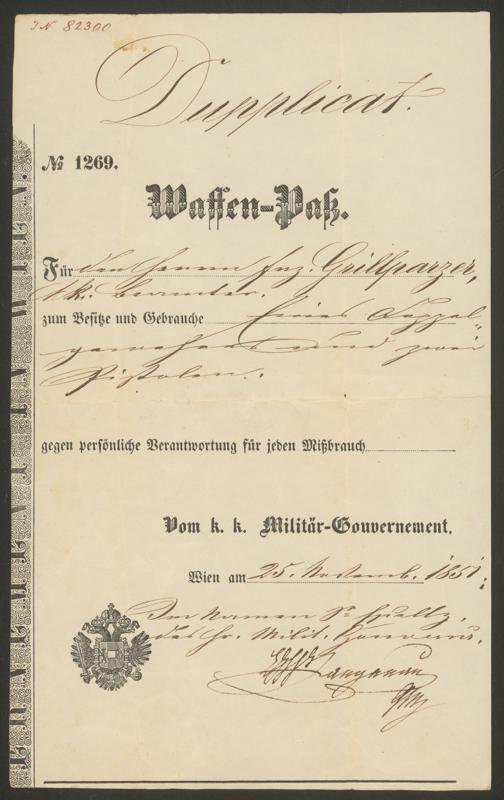 IN 82300
Dupplicat.
№ 1269.
Waffen-Paß.
Für den Herrn Frz. Grillparzer,
k.k. Beamter.
zum Besitze und Gebrauche Eines Doppel-
gewehres und zwei
Pistolen.
gegen persönliche Verantwortung für jeden Mißbrauch
Vom k. k. Militär-Gouvernement.
Wien am 25. Novemb. 1851.
Im Namen Sr Excellz.
des Hr. Milit. Gouverns.